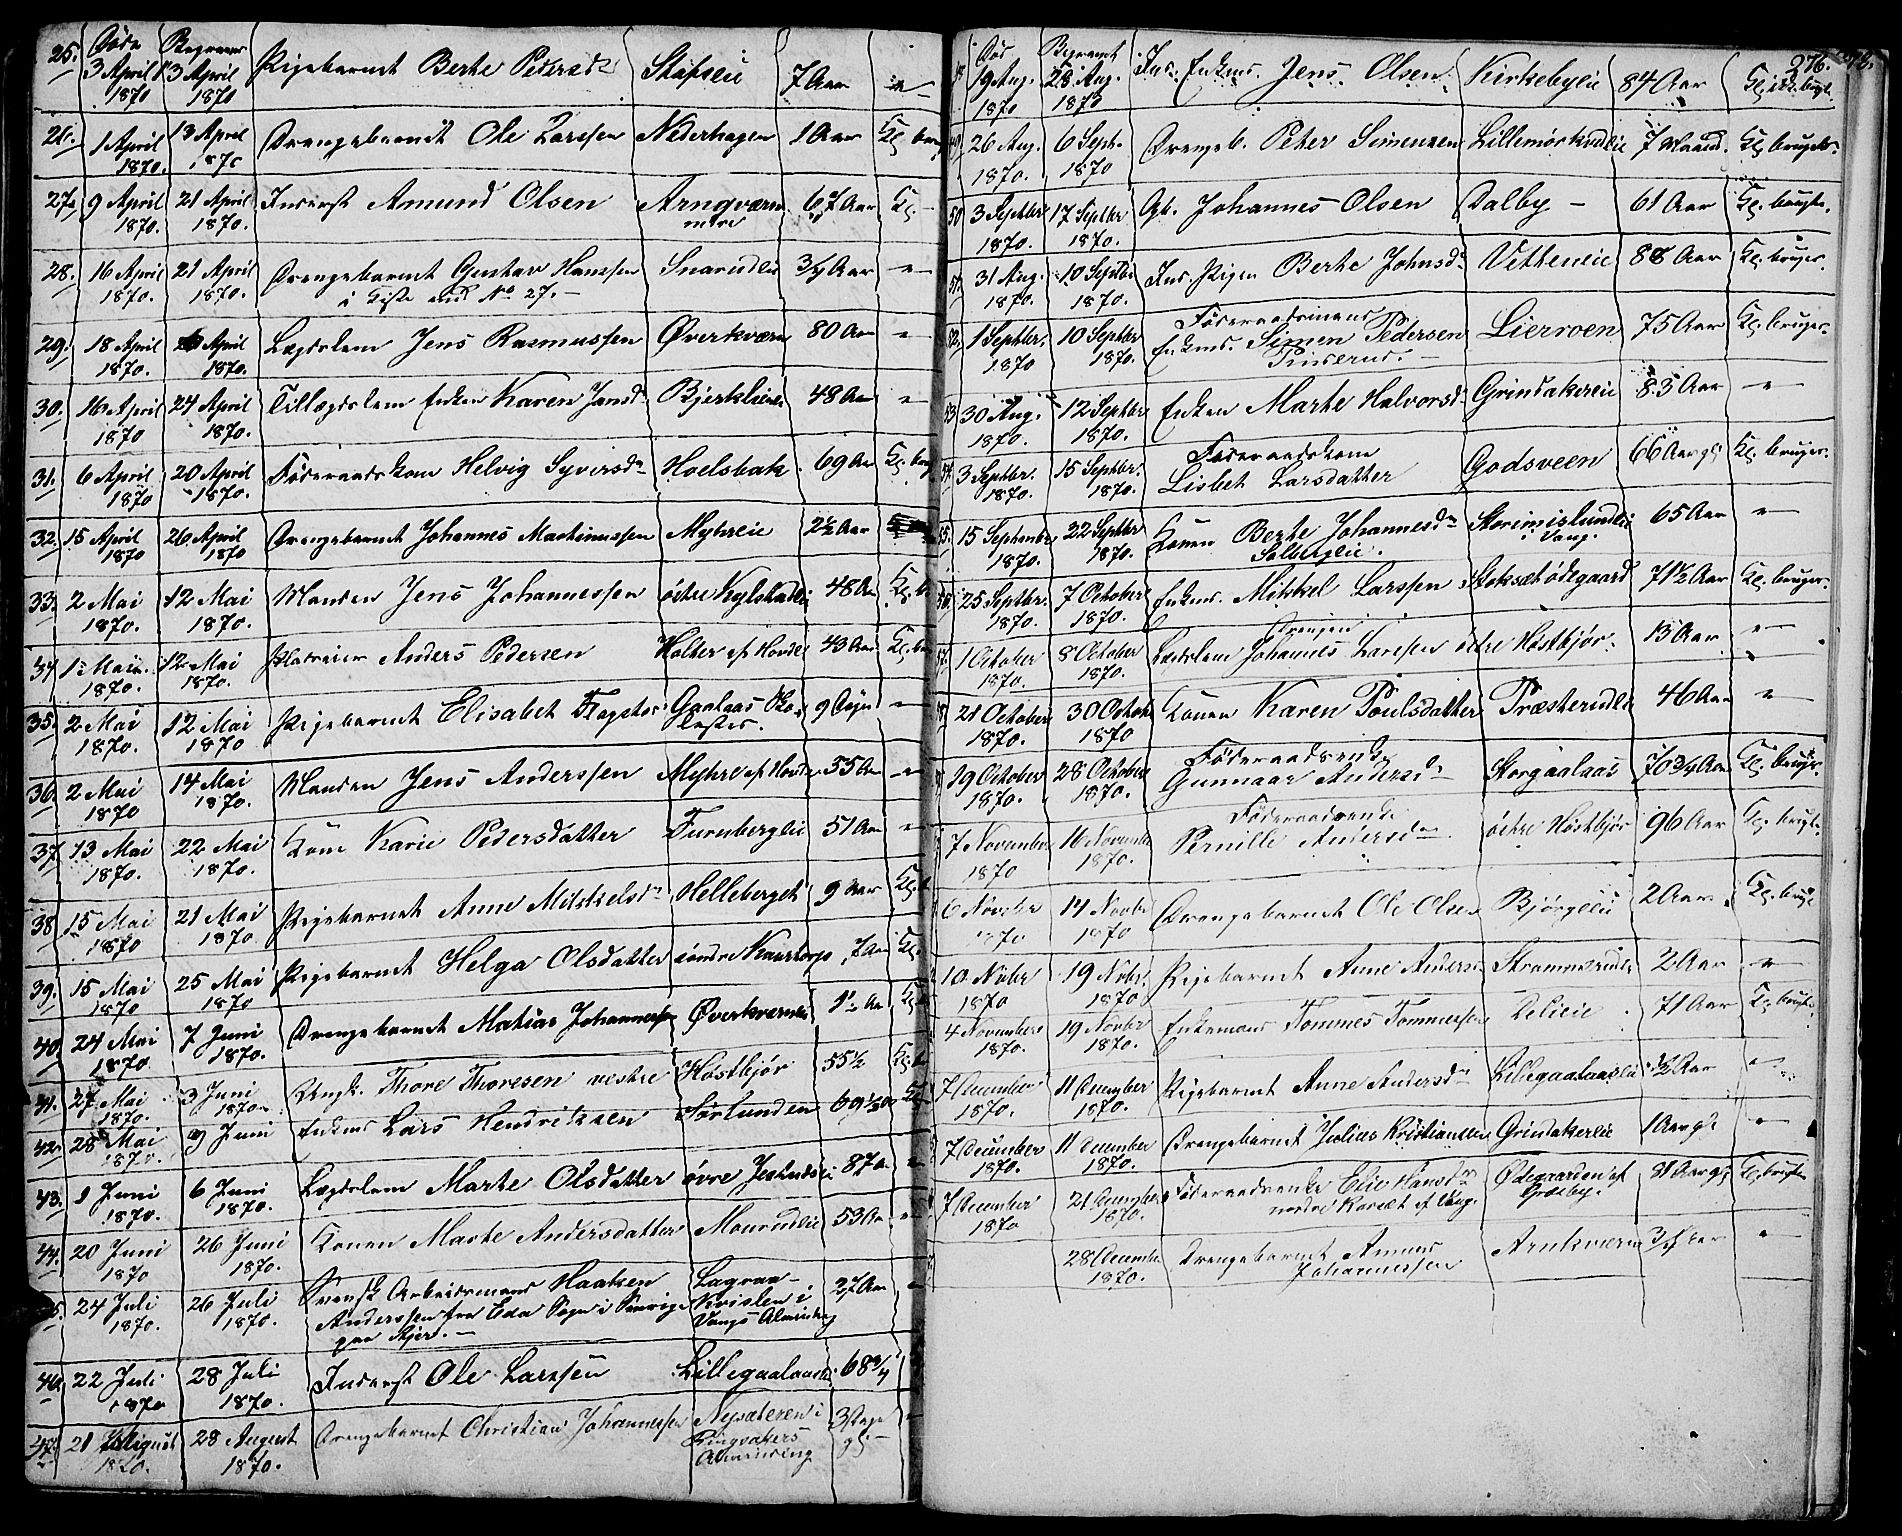 25. Døde 3 April 1870 Begravne 13 April 1870 Pigebarnet Berthe Pedersdr Stafseie 7 Aar -"-
26. 1 April 1870. 13 April 1870 Drengebarnet Ole Larssen Nederhagen 1 Aar Kl. brug
27. 9 April 1870. 21 April 1870. Inderst Amund Olsen Arnqværn metre 67 Aar Kl. -
28. 16 April 1870. 21 April 1870. Drengebarnet Gustav Hanssen Snarudlie 3/4 Aar -"-
i Kiste med No 27. -
29. 18 April 1870. April 1870. Lægdslem Jens Rasmussen Øverkværn 80 Aar "
30. 16 April 1870 24 April 1870. Tillægdslem Enken Karen Jansd. Bjerklien 48 Aar "
31. 6 April 1870 20 April 1870. Føderaadskone Helvig Syversdr Hoelsbak 69 Aar Kl. brug
32. 15 April 1870 26 April 1870 Drengebarnet Johannes Martinussen Myhreie 2½ Aar
33. 2 Mai 1870. 12 Mai 1870. Manden Jens Johannessen östre Kylstadlie 48 Aar Kl. b
34 1 Mai 1870. 12 Mai 1870. Pladseier Anders Pedersen Holter af Hovde 43 Aar Kl. bru
35. 2 Mai 1870. 12 Mai 1870 Pigebarnet Elisabet Flagstad Gaalaas Kloster. 9 Dage -"-
36. 2 Mai 1870 14 Mai 1870. Manden Jens Anderssen Myhre af Hovde 55 Aar -"-
37 13 Mai 1870. 22 Mai 1870. Kone Karie Pedersdatter Furuberglie 51 Aar -"-
38 15 Mai 1870 21 Mai 1870 Pigebarnet Anne Mikkelsdr Helleberget 9 Aar Kl.
39. 15 Mai 1870 25 Mai 1870 Pigebarnet Helga Olsdatter söndre Kaustorp 7 Aar Kl.
40. 24 Mai 1870 7 Juni 1870. Drengebarnet Matias Johannessen Øverkvernlie 1½ Aar Kl.
41. 27 Mai 1870. 3 Juni 1870. Ungk. Thore Thoresen vestre Høstbjør 55½ Kl.
42. 28 Mai 1870. 9 Juni Enkem. Lars Hendriksen Sörlunden 69½ Kl.
43. 1 Juni 1870. 6 Juni 1870. Lægdslem Marte Olsdatter övre Jesnes 87 a. "
44. 20 Juni 1870 26 Juni 1870. Konen Marte Andersdatter Maurudlie 53 Aar "
45. 24 Juli 1870. 26 Juli 1870. Svensk Arbeidsmand Haaken Anderssen fra Eda Sogn i Sverige Lagraa- Kvislen i Vangs Alminding 27 Aar "
46. 22 Juli 1870 28 Juli 1870. Inderst Ole Larssen Lillegaalaaseie 68¾
47. 21 August 1870. 28 August 1870. Drengebarnet Christian Johannessen Nysæteren i Ringsakers Alminding 3 Dage gl. -
276.
48 Død 19 Aug. 1870 Begravet 28 Aug. 1870 Ins. Enkem. Jens Olsen Kirkebyeie 84 Aar Kl. ikke brugt.
49 26 Aug. 1870. 6 Septb. 1870 Drengeb. Peter Simensen Lillemörkvedlie 7 Maand. Kl. brugtes.
50 3 Septbr 1870. 17 Septbr 1870. Gb. Johannes Olsen Dalby - 61 Aar Kl. brugt.
51. 31 Aug. 1870. 10 Septbr 1870. Ins. Pigen Berthe Johnsdr Vetheneie 88 Aar Kl. bruges.
52. 1 Septbr. 1870 10 Septbr 1870. Föderaadsmand Enkem. Simen Pedersen Lierroen 75 Aar Kl. bruges.
53 30 Aug. 1870. 12 Septbr 1870. Enken Marte Halvorsd. Grindakereie 83 Aar -"-
54. 3 Septbr. 1870. 15 Septbr. 1870. Föderaadskone Lisbet Larsdatter Godsveen 66 Aar gl Kl. bruges.
55. 15 Septembr 1870. 22 Septbr 1870. Konen Berte Johannesdr Solbergeie. Storimislundlie i Vang. 65 Aar -"-
56. 25 Septbr. 1870. 7 October 1870. Enkem. Mikkel Larssen Stoksætödegaard 71½ Aar Kl. bruges.
57. 1 October 1870. 8 October 1870. Lægdslem Drengen Johannes Larssen östre Høstbjør. 13 Aar -"-
58. 21 October 1870. 30 October 1870 Konen Karen Poulsdatter Træsterudlie 46 Aar -"-
19 October 1870. 28 October 1870. Föderaadsenke Gunnaar Andersdr Storgaalaas 70¾ Aar Kl. bruges.
7 November 1870 16 November 1870. Föderaadsenke Pernille Andersdr östre Høstbjör 96 Aar Kl. brugt.
6 Novbr 1870 14 Novbr 1870 Drengebarnet Ole Olsen Bjørgeeie 2 Aar Kl. brugt
10 Novbr 1870 19 Novbr. 1870. Pigebarnet Anne Andersd. Strammerudlie 2 Aar -"-
4 November 1870. 19 Novbr 1870. Enkemand Tommes Tommessen Lelieie 71 Aar Kl. brugt.
7 December 1870. 11 December 1870. Pigebarnet Anne Andersdr Lillegaalaaseie ½ Aar -"-
7 December 1870. 11 December 1870. Drengebarnet Julius Kristianssen Grindakereie 1 Aar gl -"-
7 December 1870 21 December 1870. Föderaadsenke Elie Hansdr nordre Korsæt af Vang. Ødegaarden af Græsby. 81 Aar gl Kl. brugt
28 December 1870. Drengebarnet Annus Johannessen Arnkværn 3/4 Aar "